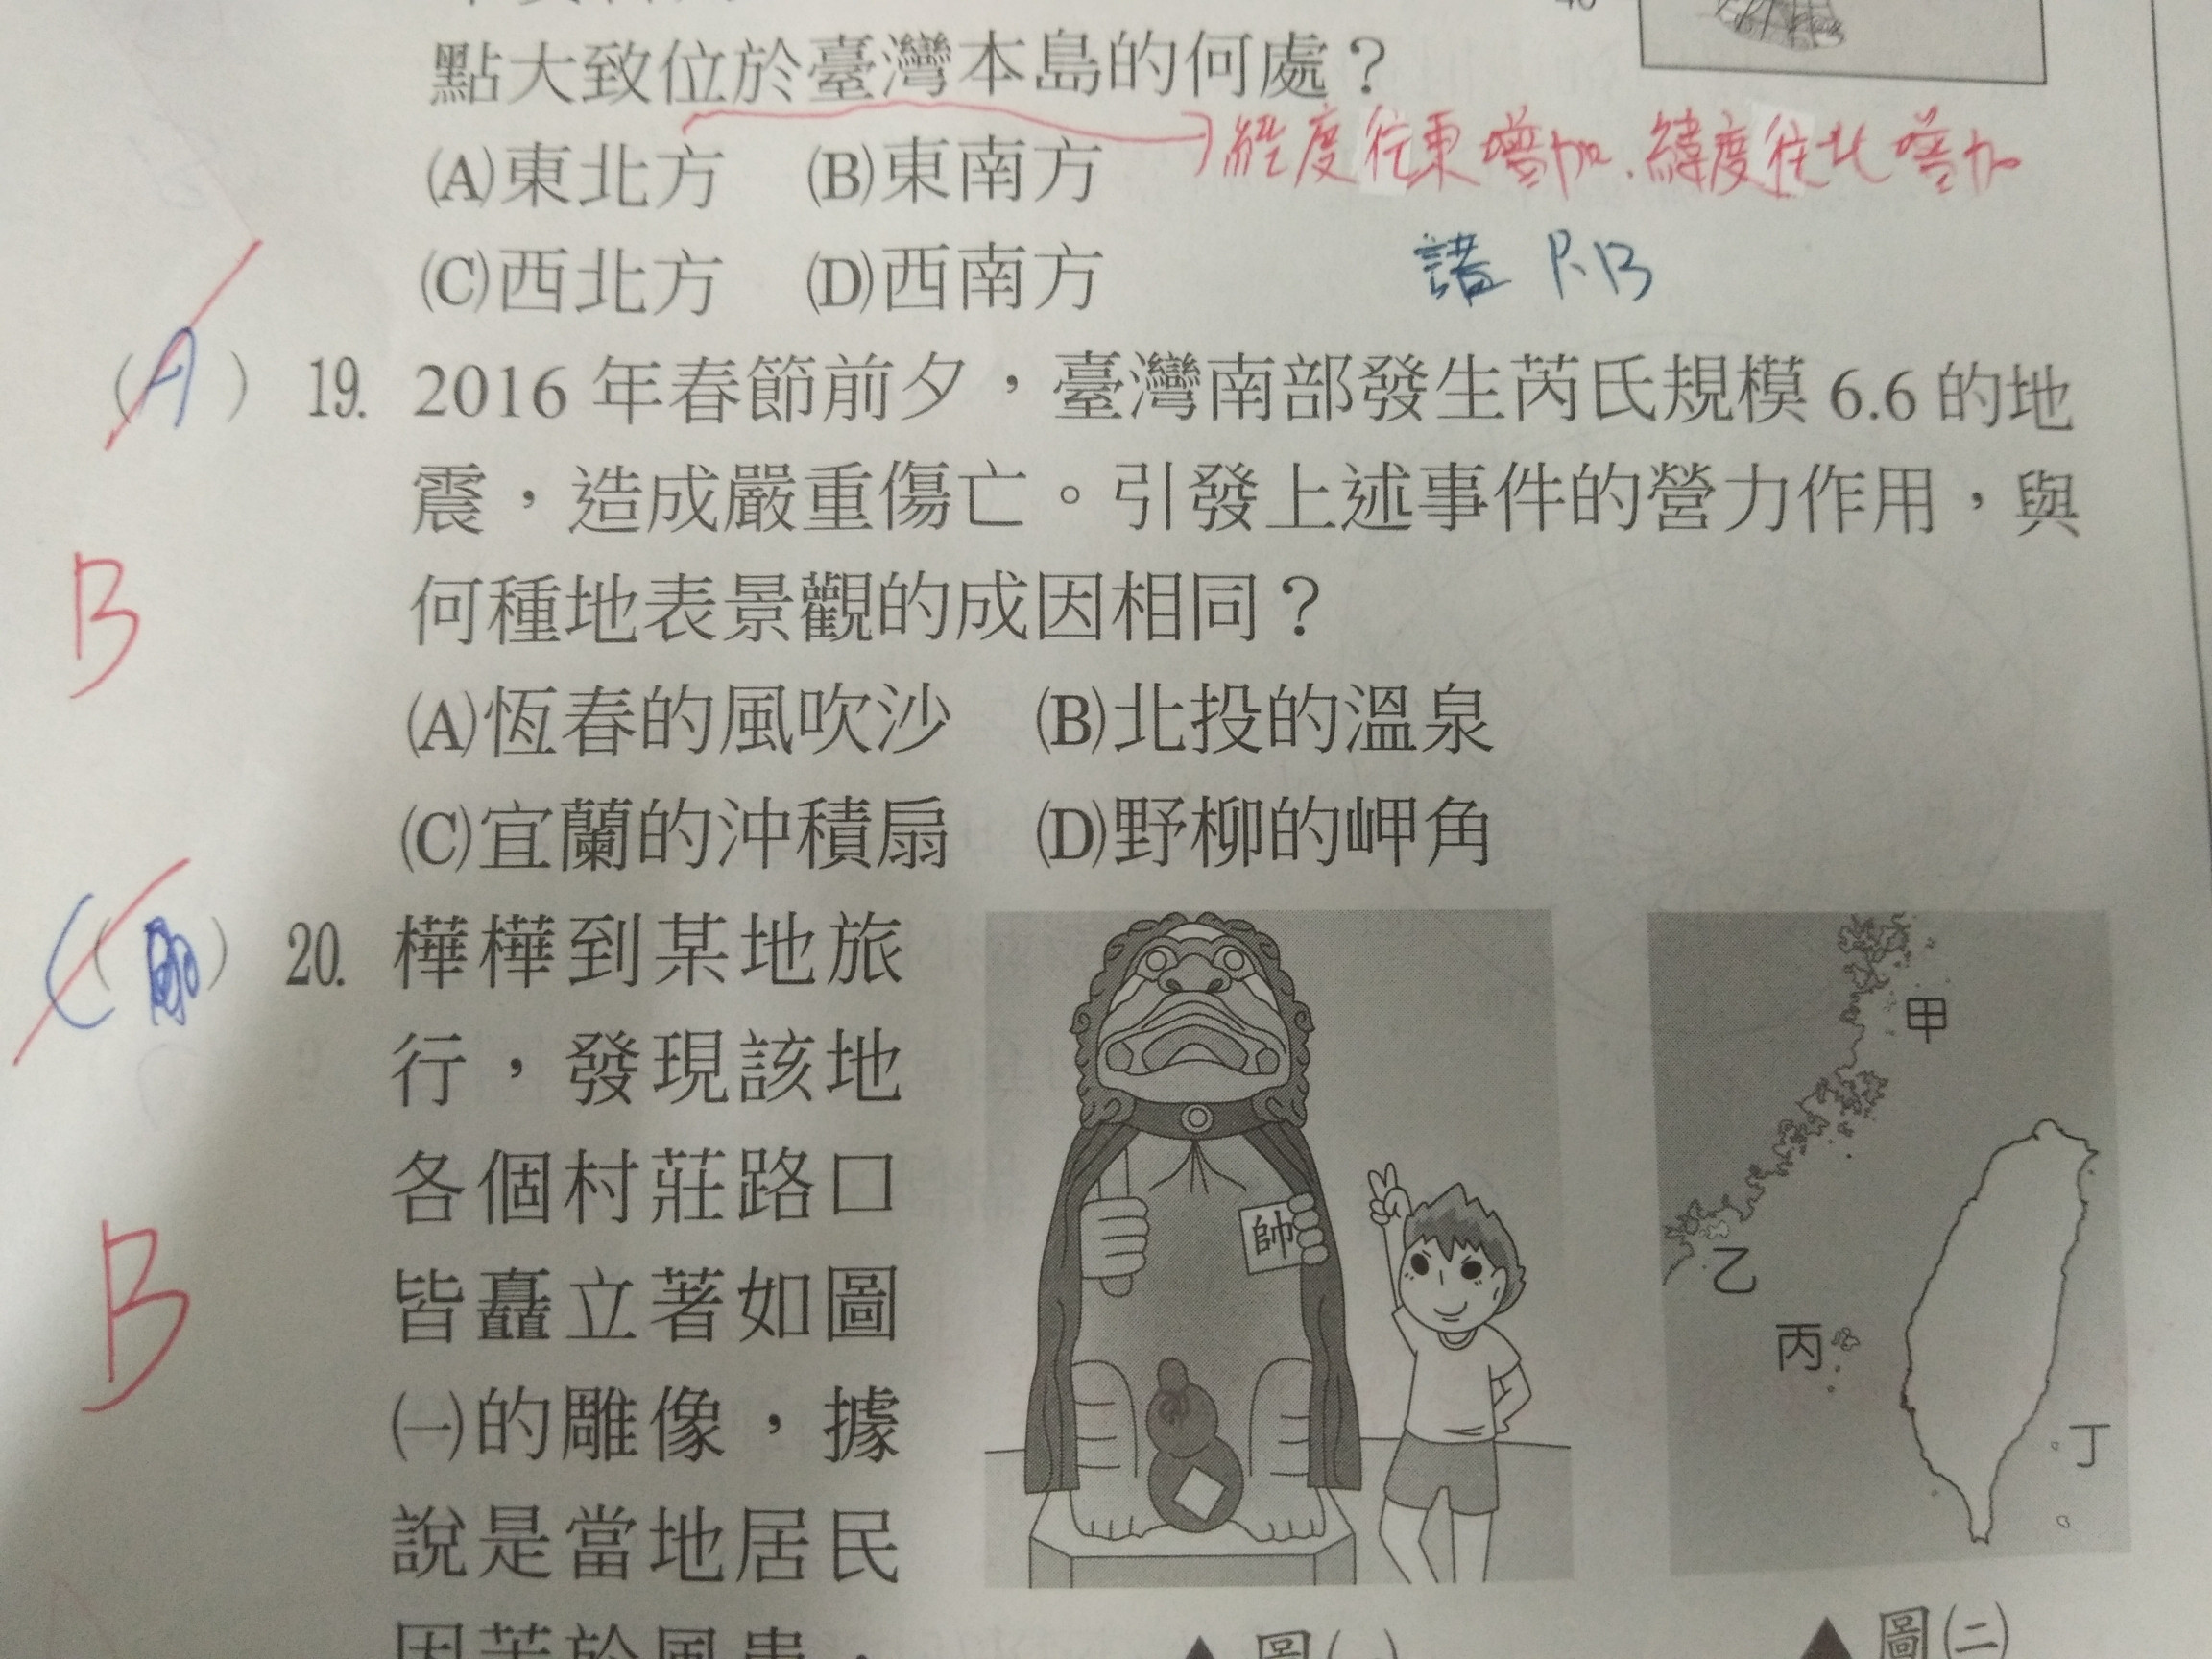 點大致位於臺灣本島的何處？
(A)東北方 (B)東南方
經度往東增加.緯度往北增加
(C)西北方 (D)西南方
(A) 19. 2016年春節前夕，臺灣南部發生芮氏規模6.6的地
震，造成嚴重傷亡。引發上述事件的營力作用，與
B
何種地表景觀的成因相同？
(A)恆春的風吹沙 (B)北投的溫泉
(C)宜蘭的沖積扇 (D)野柳的岬角
20. 樺樺到某地旅
行，發現該地
各個村莊路口
皆矗立著如圖
B
㈠的雕像，據
說是當地居民
因苦於風患，
帥
甲
乙
丙
丁
▲圖㈠
▲圖㈡